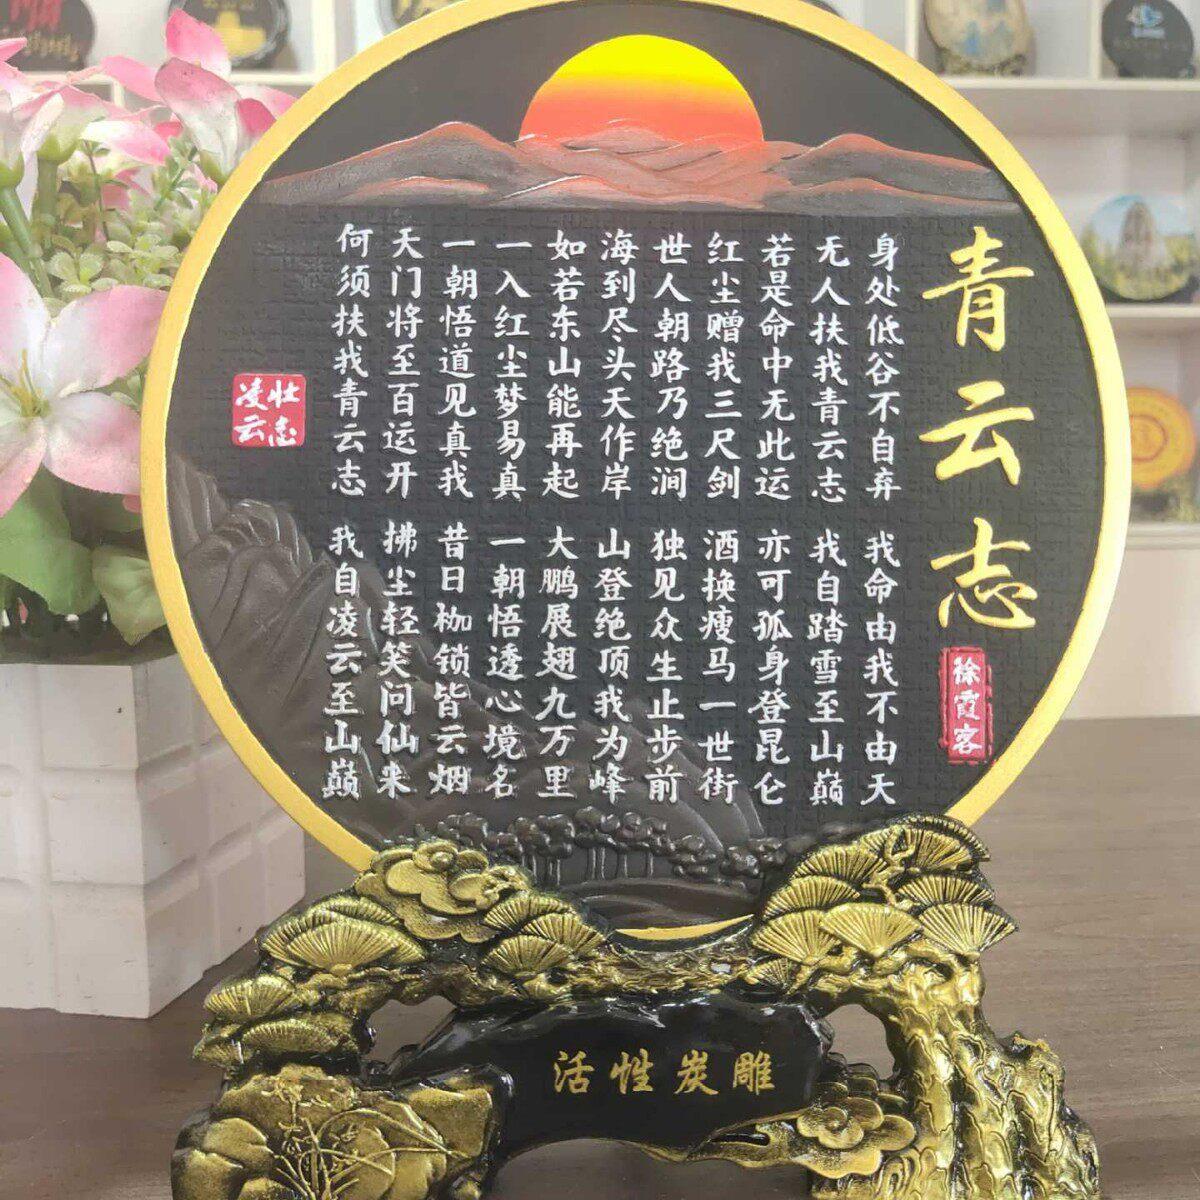 青云志
徐霞客
身处低谷不自弃 我命由我不由天
无人扶我青云志 我自踏雪至山巅
若是命中无此运 亦可孤身登昆仑
红尘赠我三尺剑 酒换瘦马一世街
世人朝路乃绝涧 独见众生止步前
海到尽头天作岸 山登绝顶我为峰
如若东山能再起 大鹏展翅九万里
一入红尘梦易真 一朝悟透心境名
一朝悟道见真我 昔日枷锁皆云烟
天门将至百运开 拂尘轻笑问仙来
何须扶我青云志 我自凌云至山巅
壮志
凌云
活性炭雕